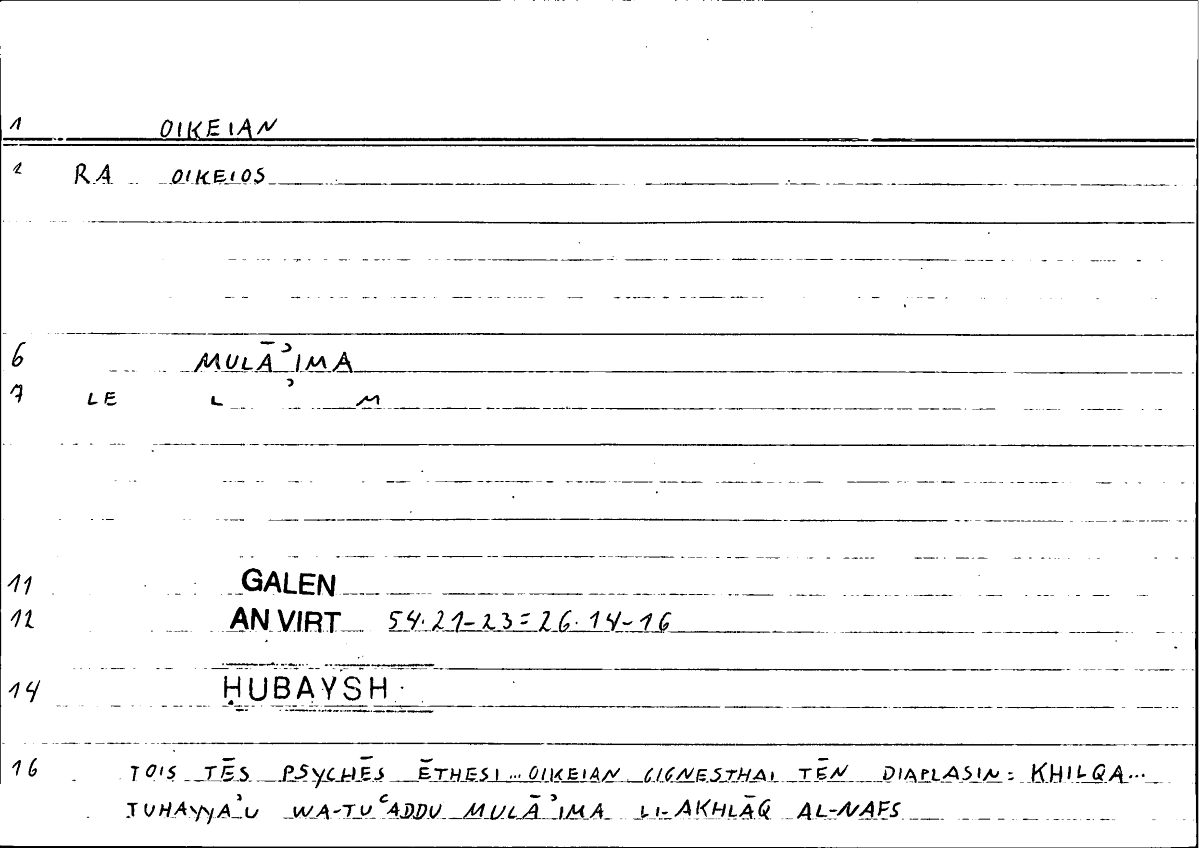 1 OIKEIAN
2 RA OIKEIOS
6 MULĀʾIMA
7 LE L ʾ M
11 GALEN
12 AN VIRT 54.21-23=26.14-16
14 ḤUBAYSH
16 TOIS TĒS PSYCHĒS ĒTHESI...OIKEIAN GIGNESTHAI TĒN DIAPLASIN: KHILQA...
TUHAYYAʾU WA-TUʿADDU MULĀʾIMA LI-AKHLĀQ AL-NAFS